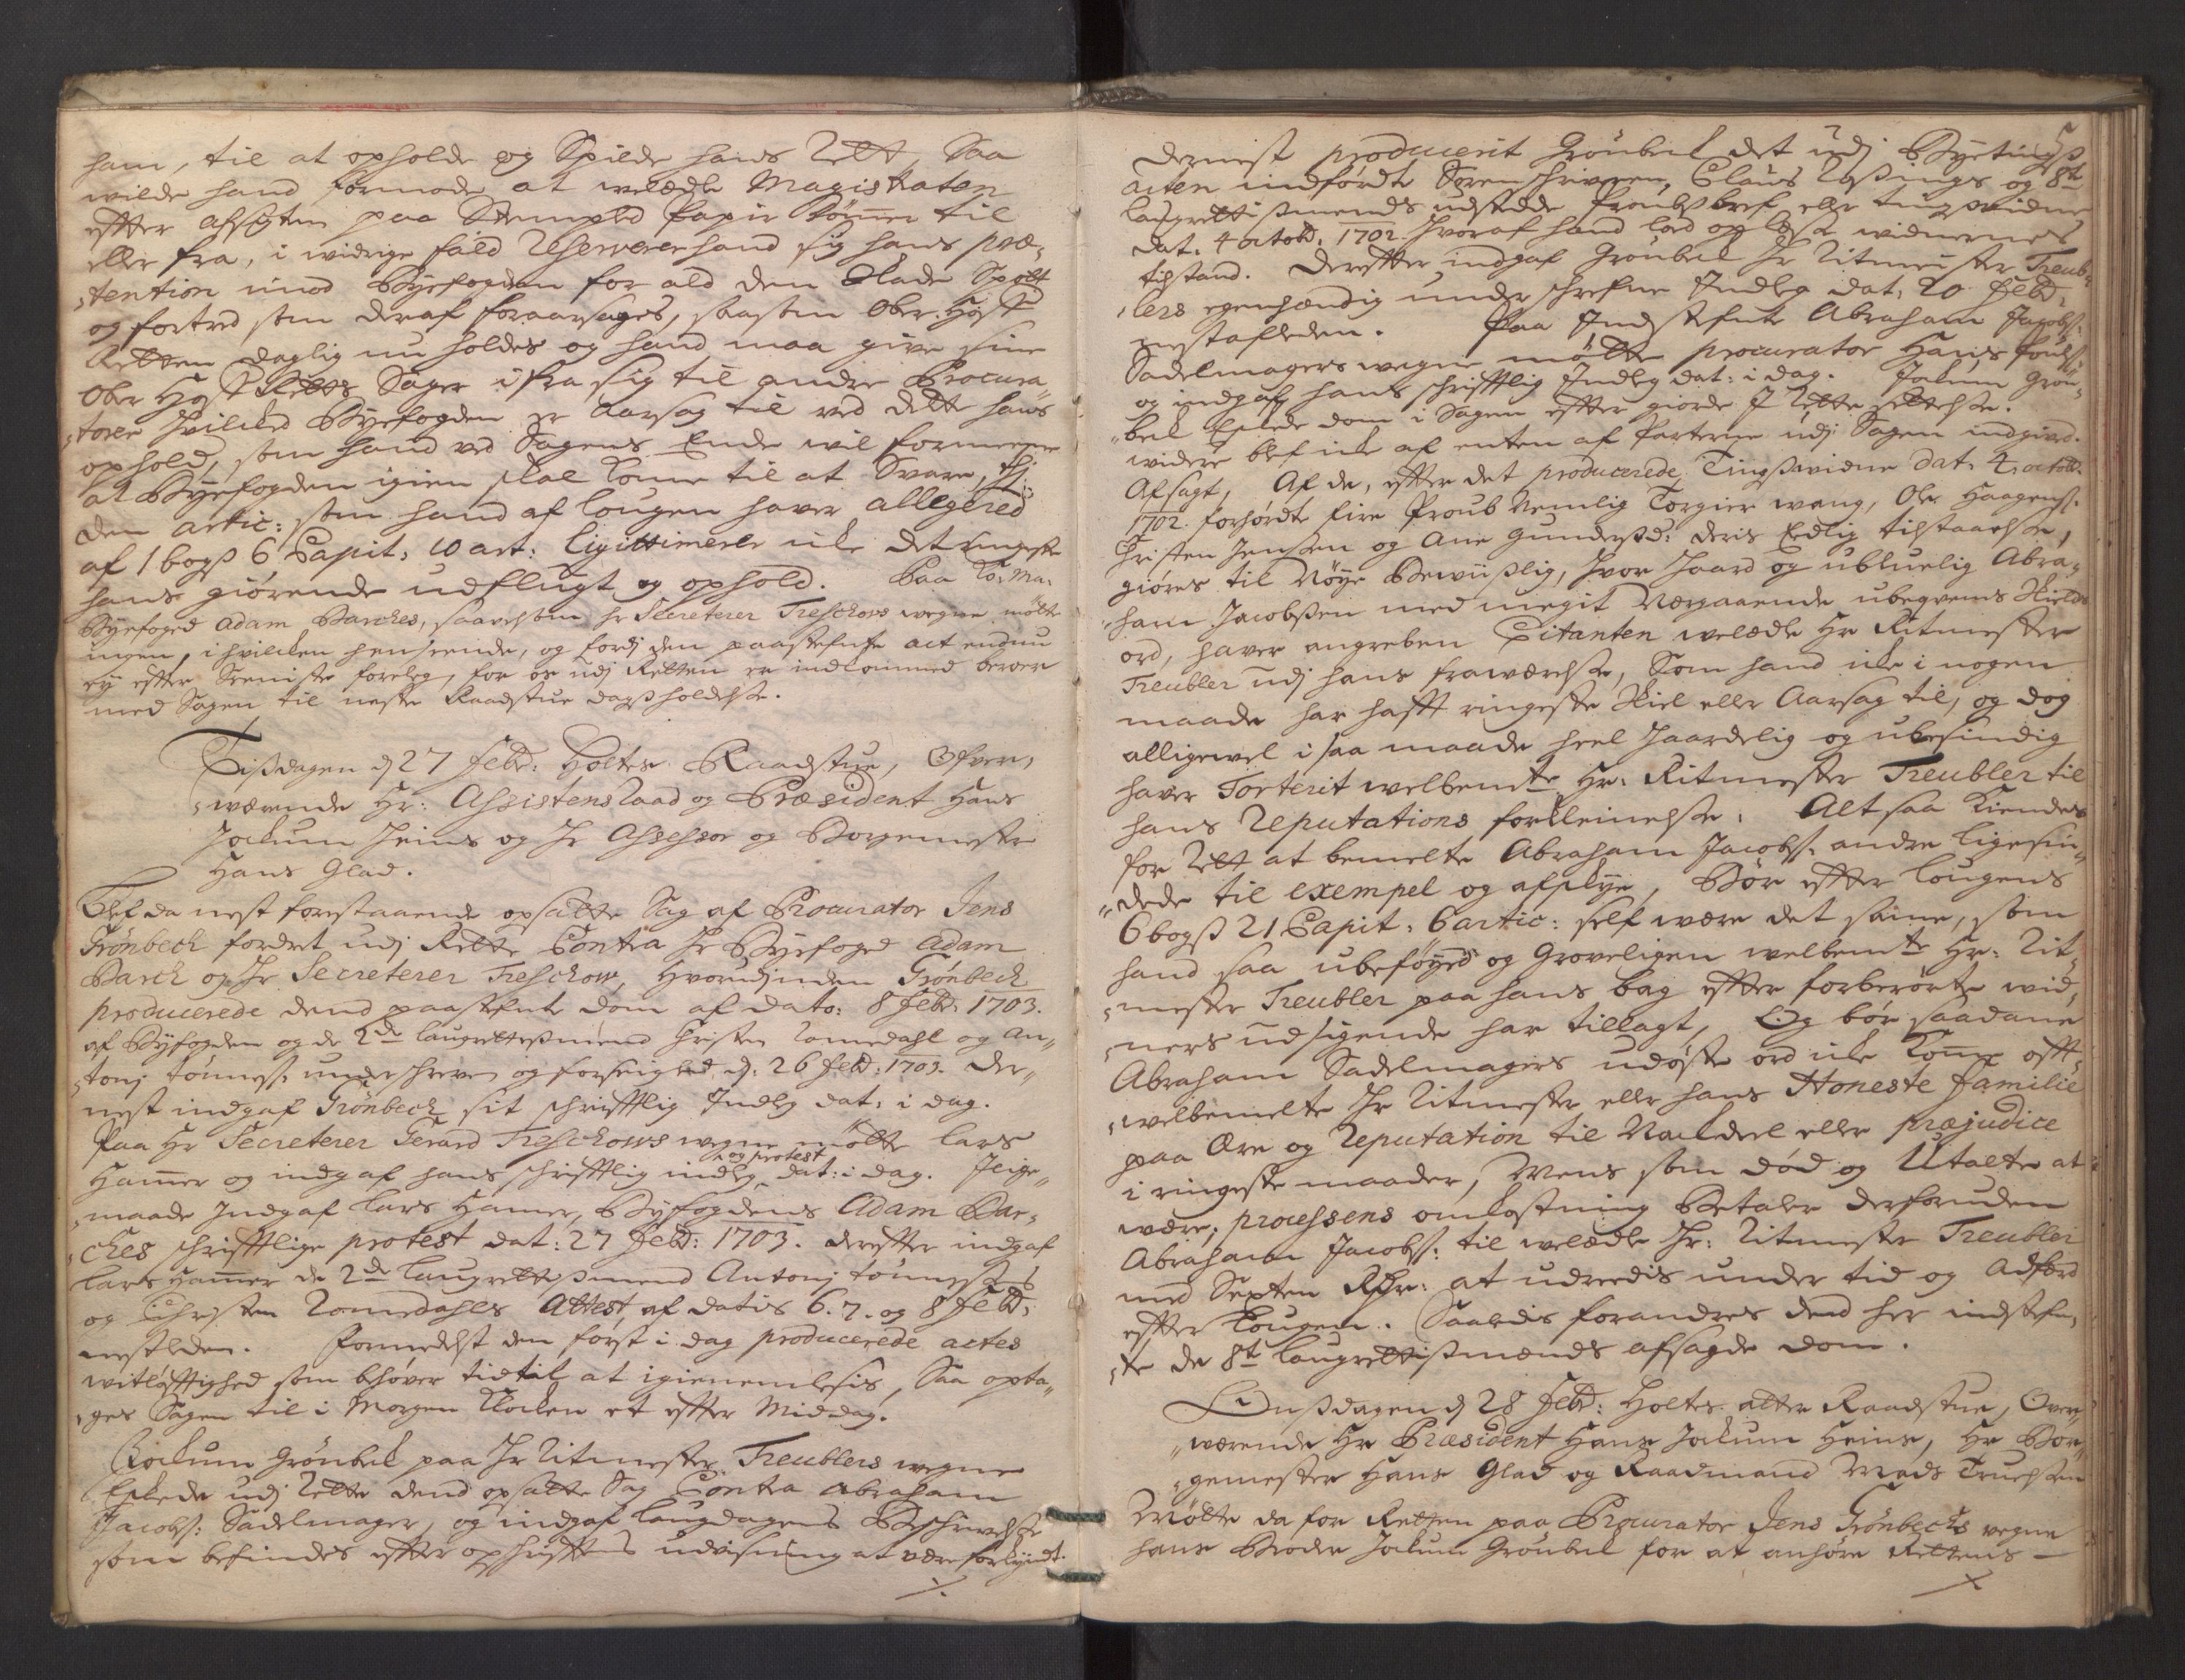 ham, til at opholde og Spilde hans Rett, Saa
wilde hand formode at welædle Magistraten
effter ahchten paa Stemplet Papir dømmer til
eller fra, i widrige fald Reserverer hand sig hans præ¸
¸tention imod Byefogden for ald den Skade Spilt
og fortred som deraf foraarsages, saasom Ober Hoff
Retten daglig nu holdes og hand maa give sine
Ober Hoff Retts Sager ifra sig til andre Procura¸
¸torer hvilcked Byefogden er Aarsag til ved dette hans
ophold, som hand ved Sagens Ende wil formeene
at Byefogden igien skal komme til at Svare, thj
den artic: som hand af lougen haver allegered
af 1 bogs 6 Capit: 10 art: ligittimerer icke det ringeste
hans giørende udflugt og ophold. Paa Ko: Ma:
Byefoged Adam Barckes, saavelsom Hr Secreterer Treschows wegne møtte
ingen, i hvilcken henseende, og fordj den paastefnte act endnu
ey effter Seeniste foreleg, for os udj Retten er indkommed beroer
med Sagen til neste Raadstue dags holdelse.
Tisdagen d 27 Febr: Holtes Raadstue, Ofver¸
¸wærende Hr: Assistens Raad og Præsident Hans
Jockum Heins og Hr Assessor og Borgemester
Hans Glad.
Blef da nest forestaaende opsatte Sag af Procurator Jens
Grønbeck fordret udj Rette Contra Hr Byefoged Adam
Barck og Hr Secreterer Treschow, hvorudjinden Grønbeck
producerede dend paastefnte dom af dato: 8 Febr: 1703.
af Byfogden og de 2de laugrettesmend Christen Romedahl og An¸
¸tonj Tønness: underschreven og forseigled d: 26 Febr: 1703. der¸
nest indgaf Grønbeck sit schrifftlig Indleg dat: i dag.
Paa Hr Secreterer Gerard Treschows wegne møtte Lars
Hammer og indgaf hans schrifftlig indleg og protest dat: i dag. Ilige¸
¸maade Indgaf Lars Hammer, Byfogdens Adam Bar¸
¸ckes schrifftlige protest dat: 27 Febr: 1703. dereffter indgaf
Lars Hammer de 2de laugrettesmend Antonj Tønnesens
og Christen Romedahls Attest, af datis 6. 7. og 8 Febr:
nestleden. Formedelst den først i dag producerede actes
witløfftighed som behøver tid til at igiennemlesis, Saa opta¸
¸ges Sagen til i Morgen Klocken et effter Middag.
Jockum Grønbeck paa Hr Ritmester Treublers wegne
Eskede udj Rette dend opsatte Sag Contra Abraham
Jacobs: Sadelmager, og indgaf laugdagens Beschrivelse
som befindes effter opschrifftens udvisning at være forkyndt.
5
dernest producerit Grønbeck det udj Byetings
acten indførdte Sorenschriveren, Claus Røsings og 8te
laugrettismends udstedde Proubsbref eller tingsvidne
dat. 4 octobr. 1702. hvoraf hand lod op læse widnernes
tilstand. dereffter indgaf Grønbeck Hr Ritmester Treub¸
¸lers egenhændig underschrefne Indleg dat: 20 Febr:
nestafleden. Paa Indstefnte Abraham Jacobs:
Sadelmagers wegne møtte procurator Hans Pouls:
og indgaf hans schrifftlig Indleg dat: i dag. Jockum Grøn¸
¸beck Eskede dom i Sagen effter giorde I Rette settelse.
widere blef icke af enten af Parterne udj Sagen indgived.
Afsagt, Af de, effter det producerede Tingswidne dat. 4 octobr.
1702. forhørdte fire Proub Nemlig Torgier wang, Ole Haagens:
Christen Jensen og Ane Gundersd: deris Eedlig tilstaaelse,
giøres til Nøye Bewiislig, hvor haard og ubluelig Abra¸
¸ham Jacobsen med megit Nærgaaende ubeqvems Skields
ord, haver angreben Citanten welædle Hr Ritmester
Treubler udj hans frawærelse, Som hand icke i nogen
maade har hafft ringeste Skiel eller Aarsag til, og dog
alligewel i saa maade heel haardelig og ubesindig
haver Torterit welbemte Hr: Ritmester Treubler til
hans Reputations forkleinelse. Altsaa Kiendes
for Rett at bemelte Abraham Jacobs: andre ligesin¸
¸dede til exempel og afskye, Bør effter Lougens
6 bogs 21 Capit: 6 artic: self være det samme, som
hand saa ubeføyed og Groveligen welbemte Hr: Rit¸
¸mester Treubler paa hans bag effter forberørte wid¸
¸ners udsigende har tillagt, Og bør saadane
Abraham Sadelmagers udøste ord icke komme offt¸
¸welbemelte Hr Ritmester eller hans Honeste Familie
paa Ære og Reputation til Nackdeel eller præjudice
i ringeste maader, Mens som død og Utalte at
være; processens omkostning Betaler derforuden
Abraham Jacobs: til welædle Hr: Ritmester Treubler
med Septen Rdr: at udreedis under tid og Adferd
effter Lougen. Saaledis forandres dend her indstefn¸
¸te de 8te laugrettismends afsagde dom.
Onsdagen d 28 Febr: Holtes atter Raadstue, Over¸
¸værende Hr Præsident Hans Jockum Heins, Hr Bor¸
¸gemester Hans Glad og Raadmand Mads Truelsen
Møtte da for Retten paa Procurator Jens Grønbecks vegne
hans Broder Jockum Grønbeck for at anhøre Rettens